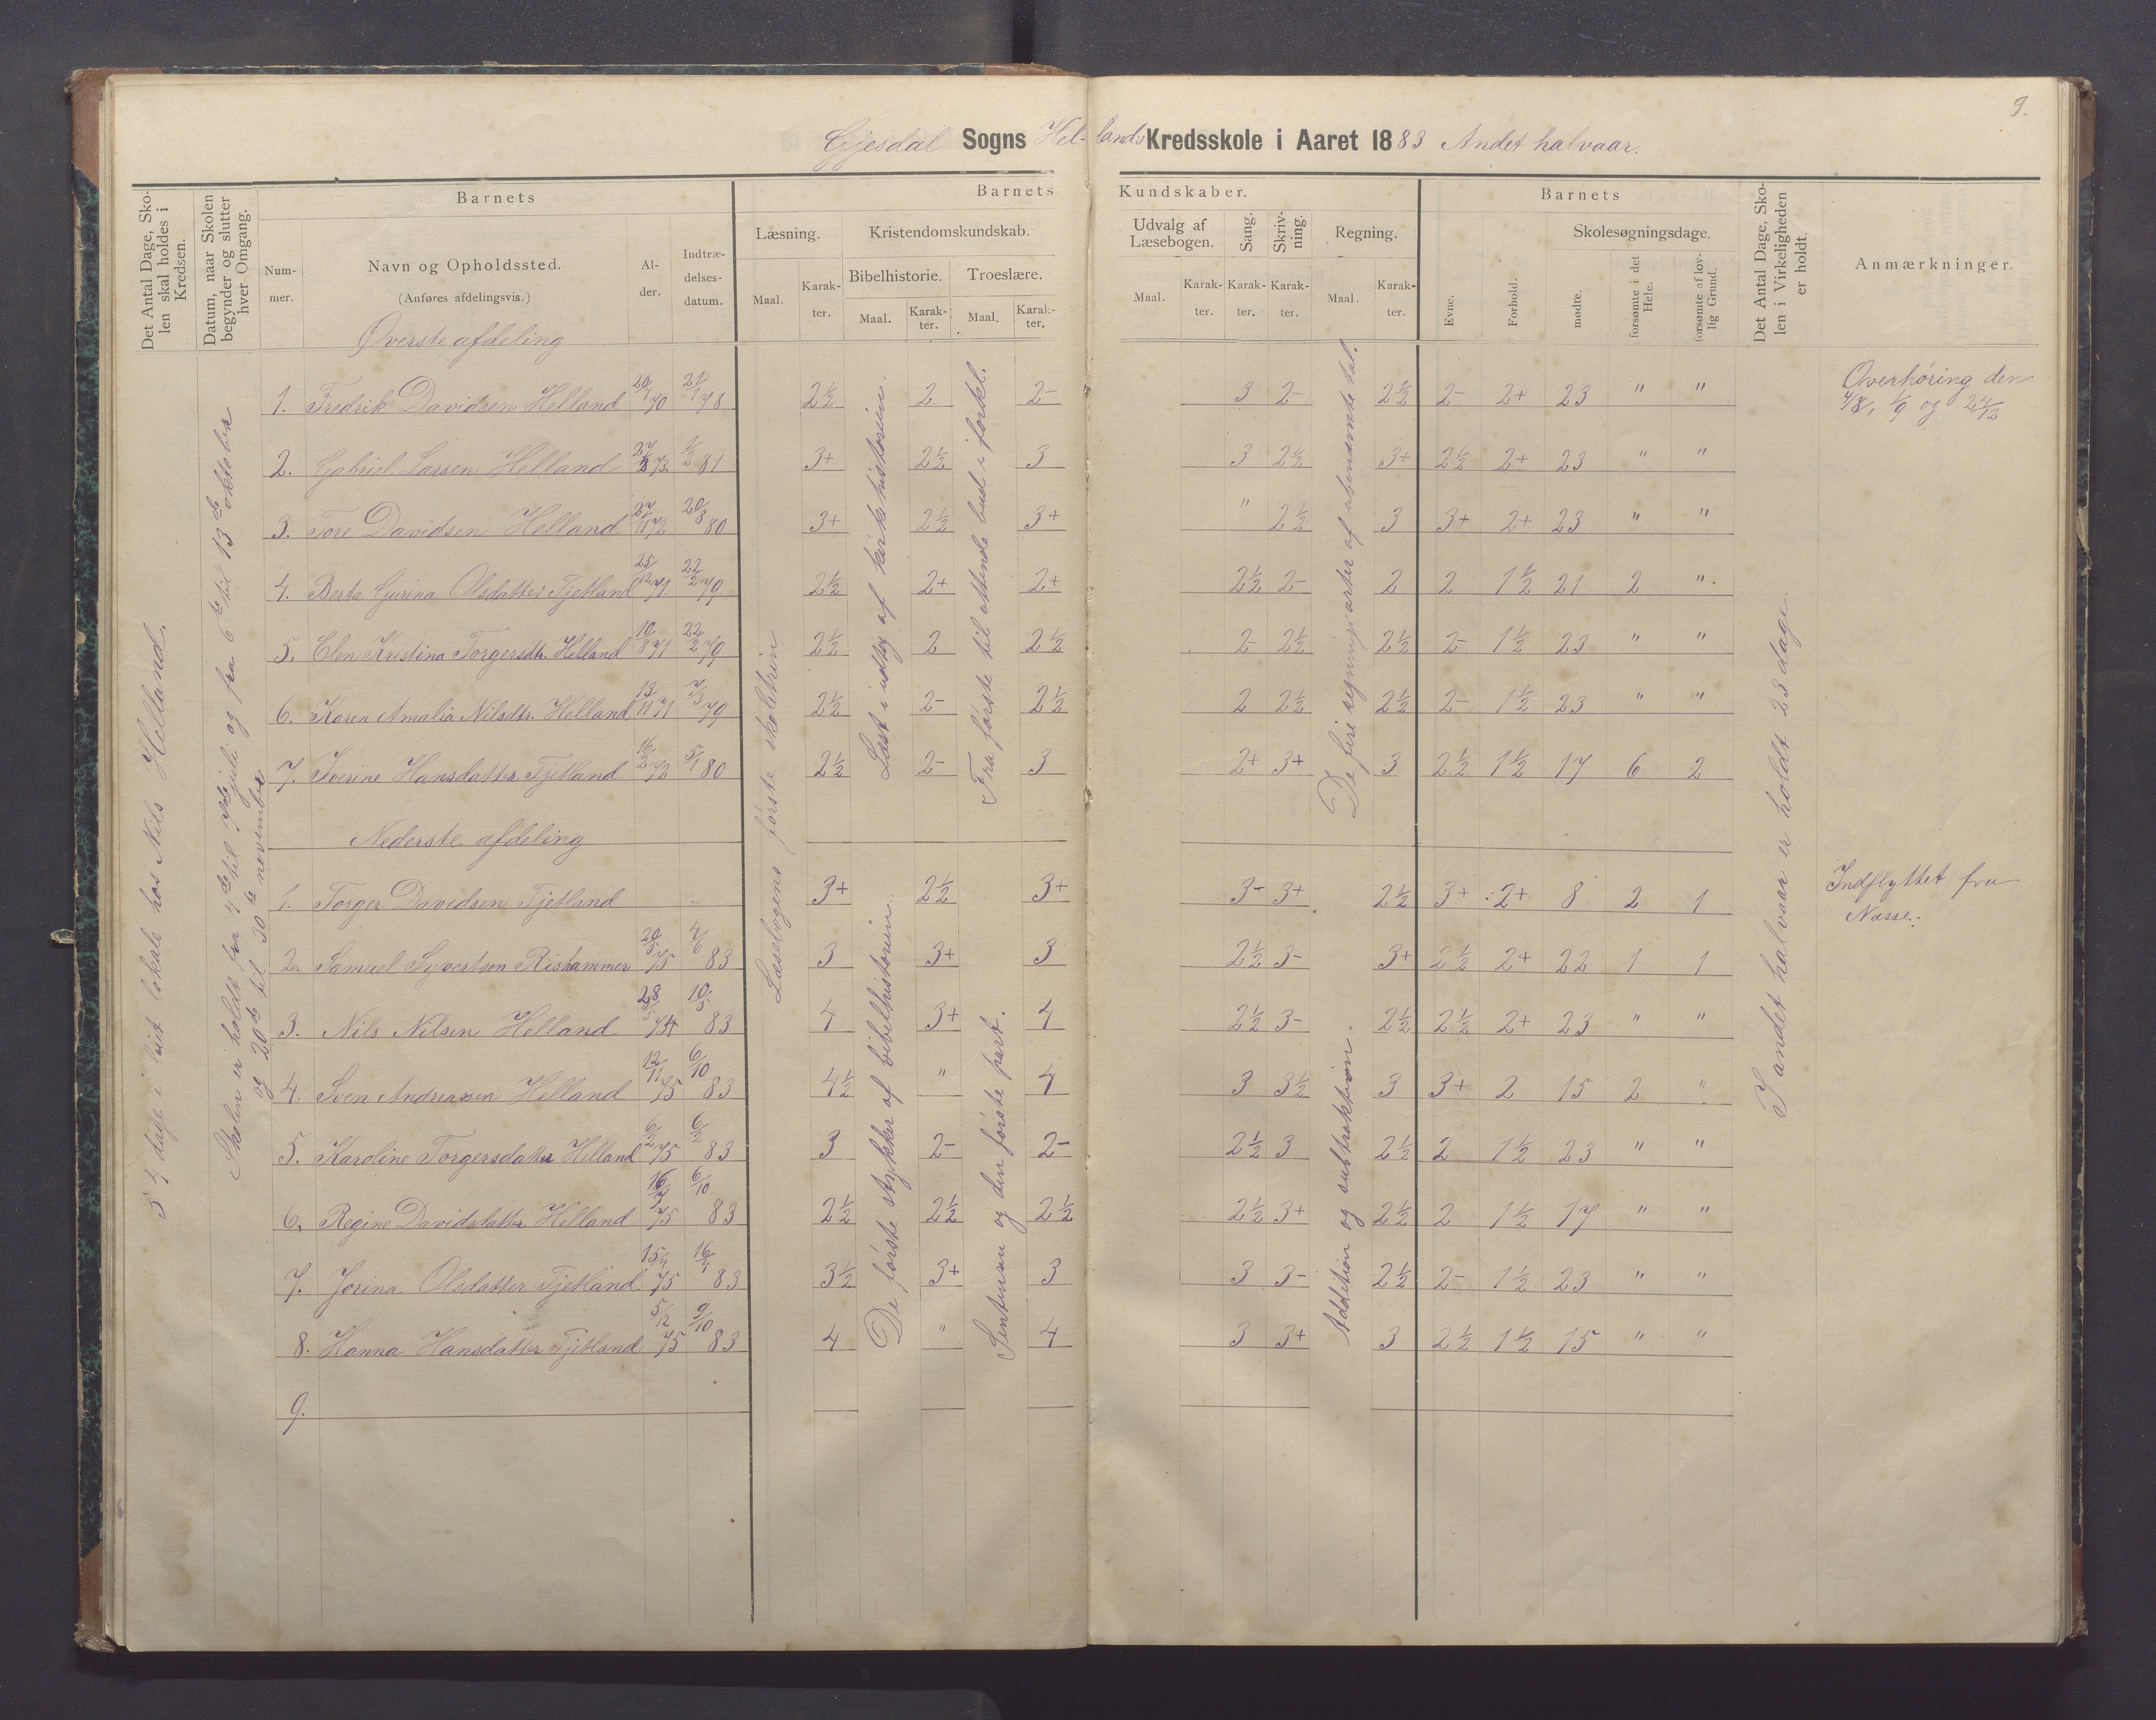 9.
Gjesdal Sogns Hellands Kredsskole i Aaret 1883 Andet halvaar.
Det Antal Dage, Skolen skal holdes i Kredsen.
Datum, naar Skolen begynder og slutter hver Omgang.
Barnets
Nummer.
Navn og Opholdssted.
(Anføres afdelingsvis.)
Alder.
Indtrædelsesdatum.
Barnets Kundskaber.
Læsning.
Maal. Karakter.
Kristendomskundskab.
Bibelhistorie. Troeslære.
Maal. Karakter. Maal. Karakter.
Udvalg af Læsebogen.
Maal. Karakter.
Sang. Karakter.
Skrivning. Karakter.
Regning.
Maal. Karakter.
Barnets
Evne. Forhold.
Skolesøgningsdage.
mødte. forsømte i det Hele. forsømte af lovlig Grund.
Det Antal Dage, Skolen i Virkeligheden er holdt.
Anmærkninger.
dage i leiet lokale hos Nils Helland.
Skolen er holdt fra til juli og fra 6te til 13de oktober
og 20de til 30te november
Læsebogens første skoletrin
Læst i udtog af kirkehistorien.
Fra første til ottende bud i forkl.
De fire regningsarter af ubenævnte tal.
I andet halvaar er holdt 23 dage.
Øverste afdeling
1. Fredrik Davidsen Helland 70 78 2½ 2 2- 3 2- 2½ 2- 2+ 23 " "
Overhøring den
2. Gabriel Larsen Helland 73 ½ 81 3+ 2½ 3 3 2½ 3+ 2½ 2+ 23 " "
3. Tore Davidsen Helland 27/11 72 20/8 80 3+ 2½ 3+ " 2½ 3 3+ 2+ 23 " "
4. Berta Gurina Olsdatter Tjetland 25/12 71. 22/2 79. 2½ 2+ 2+ 2½ 2- 2 2 1½ 21 2 "
5. Elen Kristina Torgersdtr Helland 10/8 71 22/2 79 2½ 2 2½ 2- 2½ 2½ 2- 1½ 23 " "
6. Karen Amalia Nilsdtr. Helland 13/11 71 7/3 79 2½ 2- 2½ 2 2½ 2½ 2- 1½ 23 " "
7. Iverine Hansdatter Tjetland 16/2 72 5/1 80 2½ 2- 3 2+ 3+ 3 2½ 1½ 17 6 2
Nederste afdeling
De første stykker af bibelhistorien.
og den første part.
Addition og subtraktion.
1. Torger Davidsen Tjetland 3+ 2½ 3+ 3- 3+ 2½ 3+ 2+ 8 2 1
Indflyttet fra
Næsse.
2. Samuel Syvertsen Rishammer 20/5 75 4/6 83 3 3+ 3 2½ 3- 3+ 2½ 2+ 22 1 1
3. Nils Nilsen Helland 74 10/5 83 4 3+ 4 2½ 3- 2½ 2½ 2+ 23 " "
4. Sven Andreassen Helland 12/11 75 6/10 83 4½ " 4 3 3½ 3 3+ 2 15 2 "
5. Karoline Torgersdatter Helland 6/2 75 6/2 83 3 2- 2- 2½ 3 2½ 2 1½ 23 " "
6. Regine Davidsdatter Helland 16/7 75 6/10 83 2½ 2½ 2½ 2½ 3+ 2½ 2 1½ 17 " "
7. Jorina Olsdatter Tjetland 15/4 75 16/4 83 3½ 3+ 3 3 3- 2½ 2- 1½ 23 " "
8. Hanna Hansdatter Tjetland 5/12 75 9/10 83 4 " 4 3 3+ 3 2½ 1½ 15 " "
9.